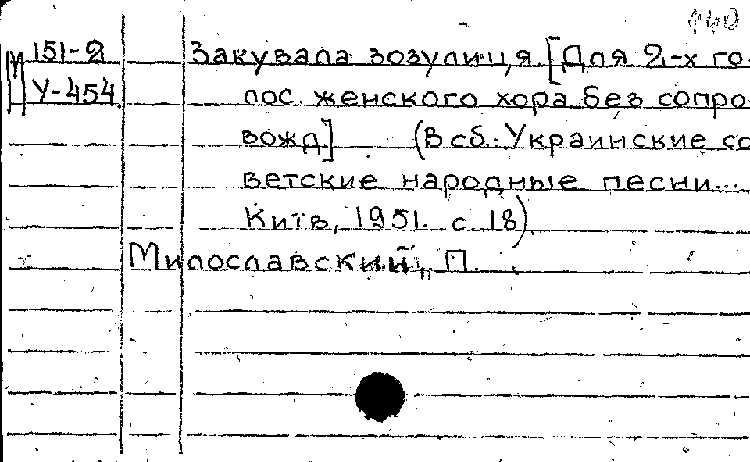 М 151-2
У-454
Закувала зозулиця. [Для 2-х го-
лос. женского хора без сопро-
вожд] (В сб.: Украинские со-
ветские народные песни...
Київ, 1951. с. 18).
Милославский, П.